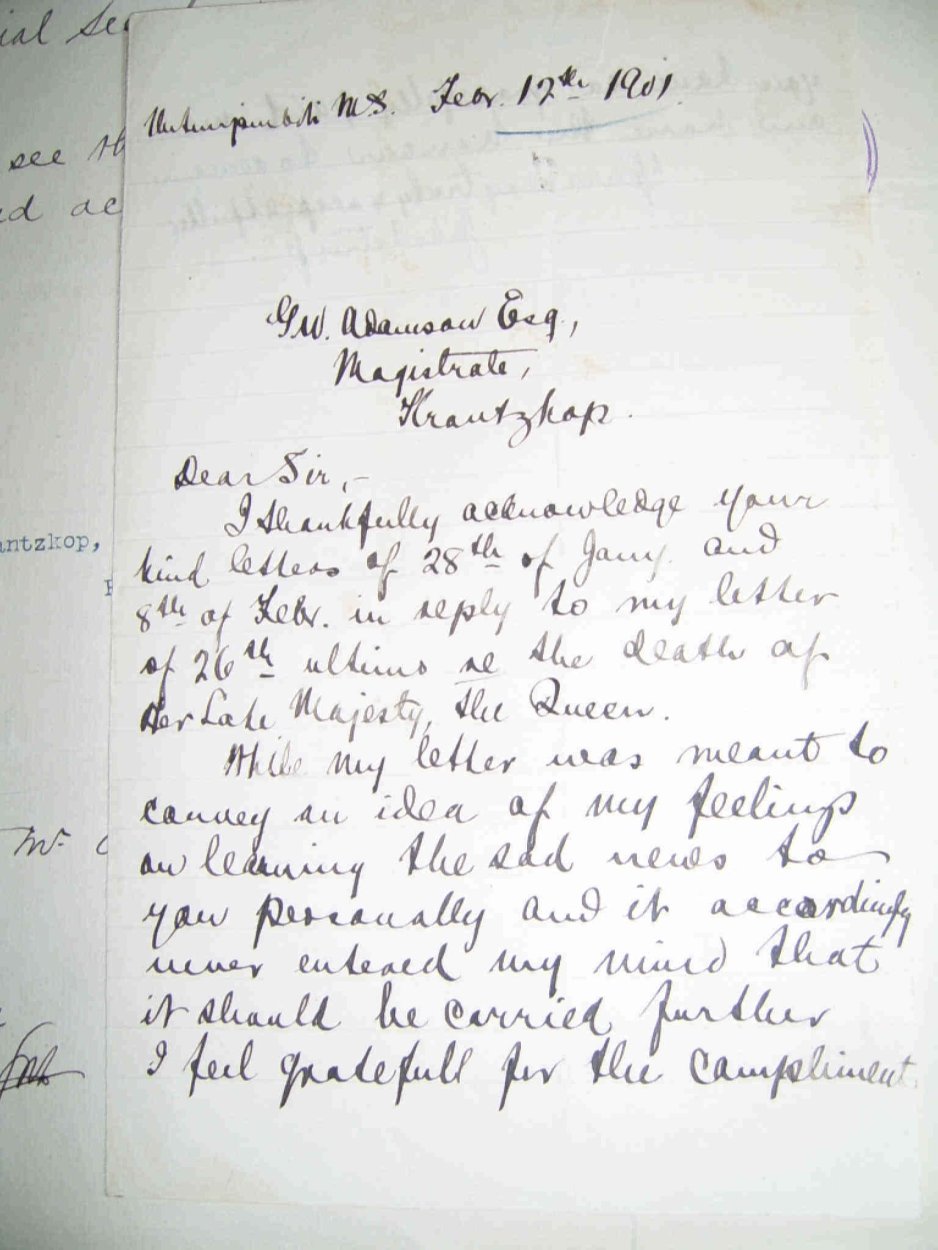 ial Sec
see th
ed ac
antzkop,
Mr. C
M.S. Febr. 12th 1901.
G.W. Adamson Esq.,
Magistrate,
Krantzkop.
Dear Sir,-
I thankfully acknowledge your
kind letters of 28th of Jany. and
8th of Febr. in reply to my letter
of 26th ultimo re the death of
Her Late Majesty, the Queen.
While my letter was meant to
convey an idea of my feelings
on learning the sad news to
you personally and it accordingly
never entered my mind that
it should be carried further
I feel gratefull for the compliment